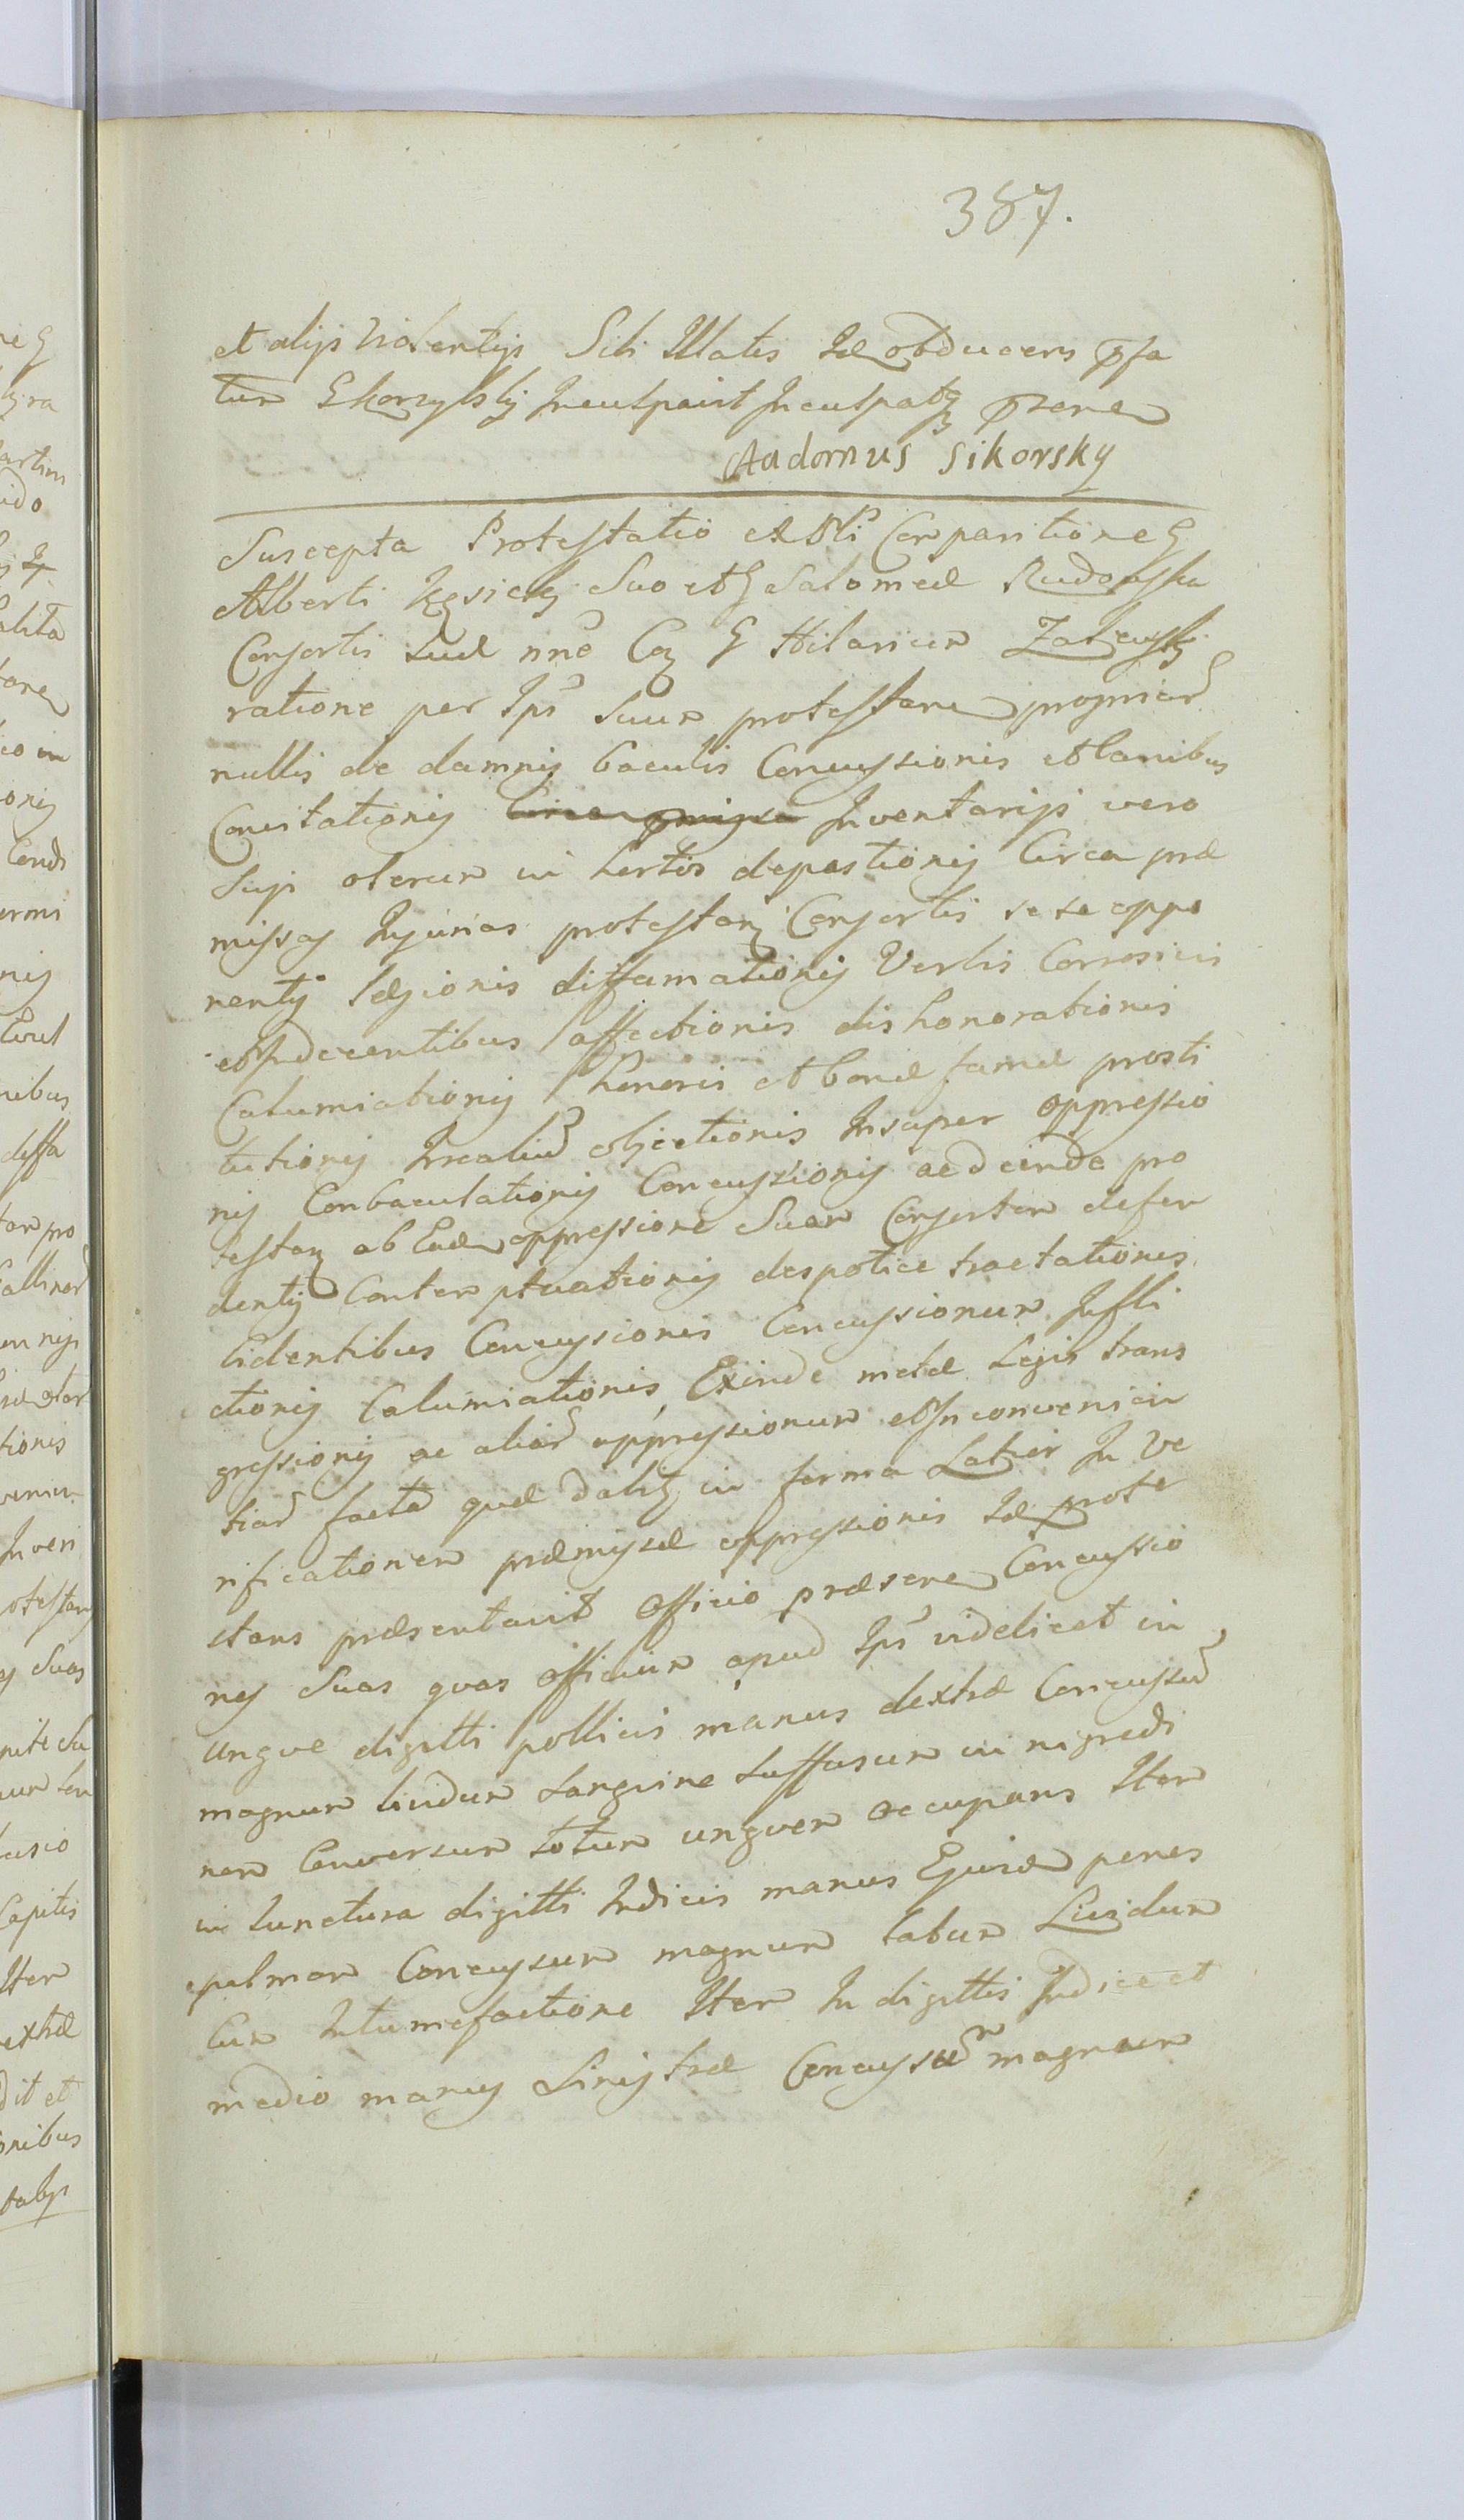 387.
et alijs Violentijs Sibi Illatis Idē obducens
tum Skorzylski Inculpavit
Aadomus Sikorsky
Suscepta Protestatio ex Comparitione G
Alberti Kęsicki Suo et G Salomeæ Rudowska
Consortis Suæ nnē G Hilarium Zaleusky
ratione per Ips Suum protestare
nullis de damnis baculis Concussionis et Canibus
Concitationis Inventarijs vero
Sujs olerum in hortis depastionis Circa præ
missas Injurias protestan Consortis sese oppo
nentis læsionis diffamationis Verbis Corrosivis
et Indecentibus affectionis dishonorationis
Calumiationis honoris et bonæ famæ prosti
tutionis objectionis Insuper oppressio
nis Conbaculationis Concussionis ac deinde pro
testan ab Eadem oppressione Suam Consortem defen
dentis Contemptuationis despotice tractationis
lidentibus Concussionis Concussionum Infli
ctionis Calumiationis Exinde metæ Legis trans
gressionis ac aliar oppressionum et Inconvenien
tiar facta quæ in forma In Ve
rificationem præmissæ oppressionis Idē prote
stans præsentavit Officio præsenē Concussio
nes Suas quas Officium apud Ips videlicet in
ungve digitti pollicis manus dextræ Concussū
magnum lividum Sangvine Suffusum in nigredi
nem Conversum totum ungvem occupans Item
in Iunctura digitti Indicis manus Ejusdē penes
pulmam Concussum magnum tabum Lividum
Cum Intumefactione Item In digittis Indice et
medio manus Sinistræ Concussum magnum